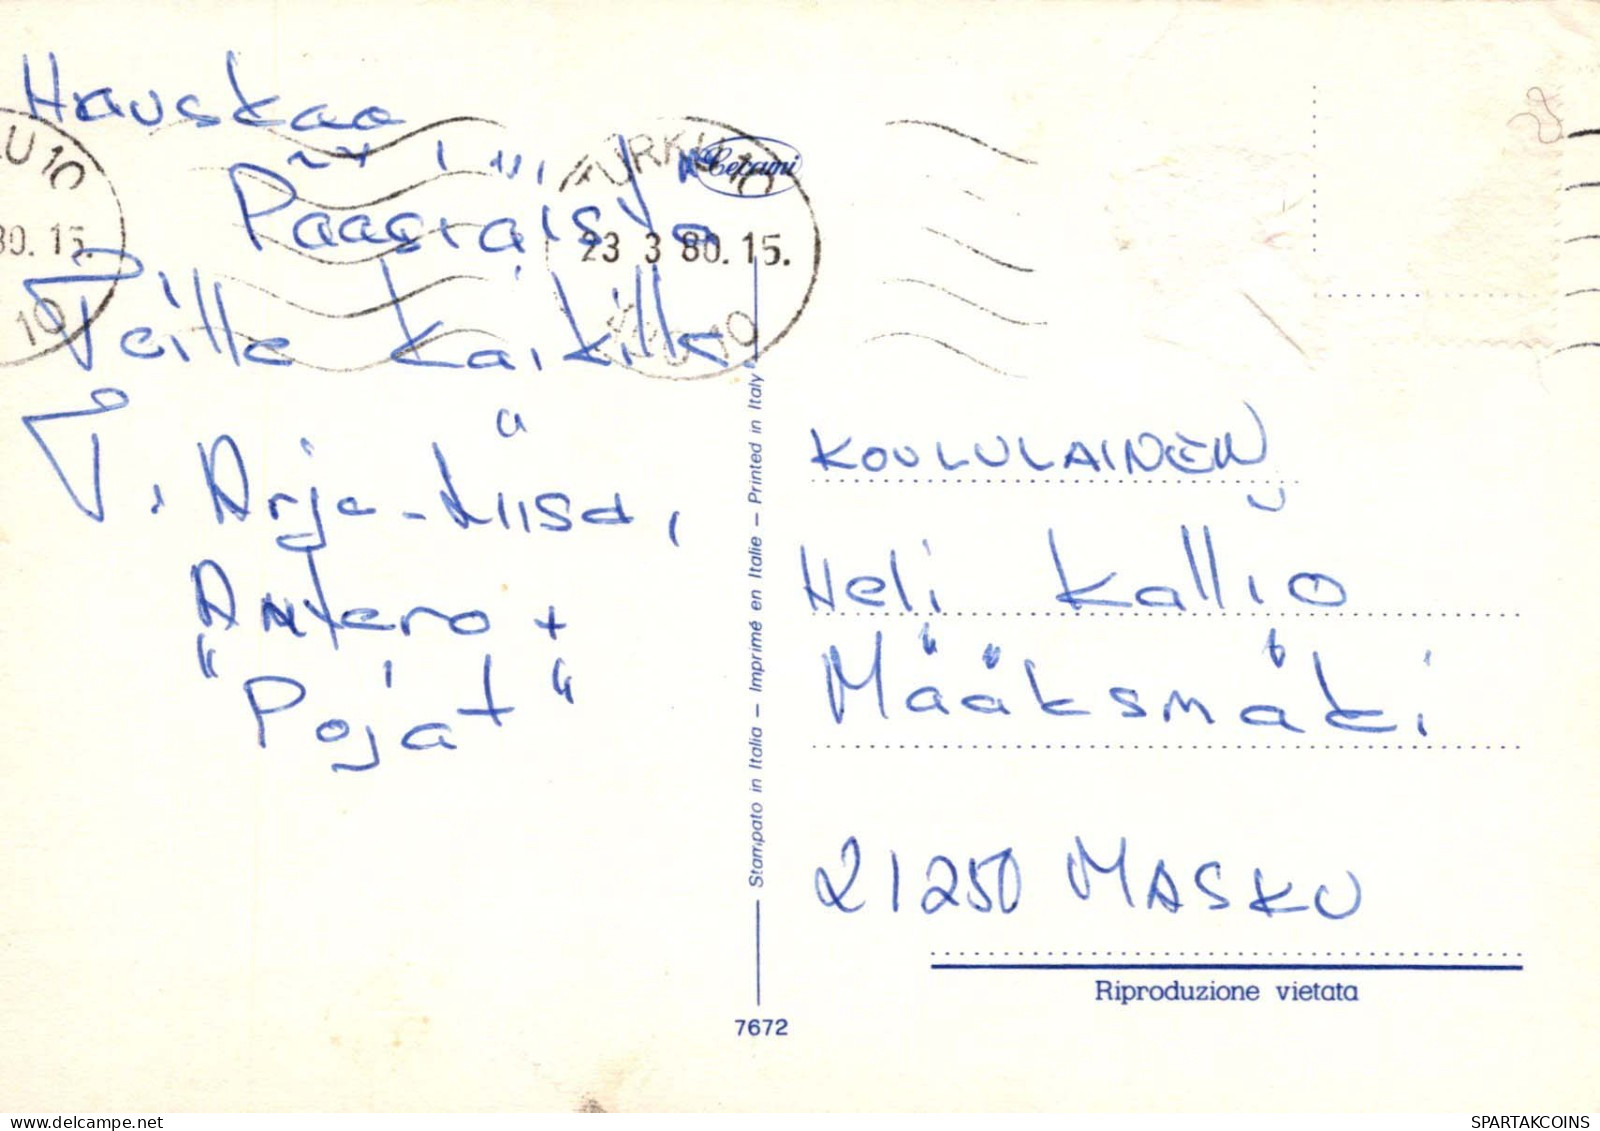 Hauskaa
Pääsiäistä
Teille kaikille!
T. Arja-Liisa,
Antero +
"Pojat"
TURKU 10
23 3 80. 15.
ÅBO 10
LU 10
80. 15.
10
Cecami
Stampato in Italia – Imprimé en Italie – Printed in Italy
7672
KOULULAINEN
Heli Kallio
Määksmäki
21250 MASKU
Riproduzione vietata
SPARTAKCOINS